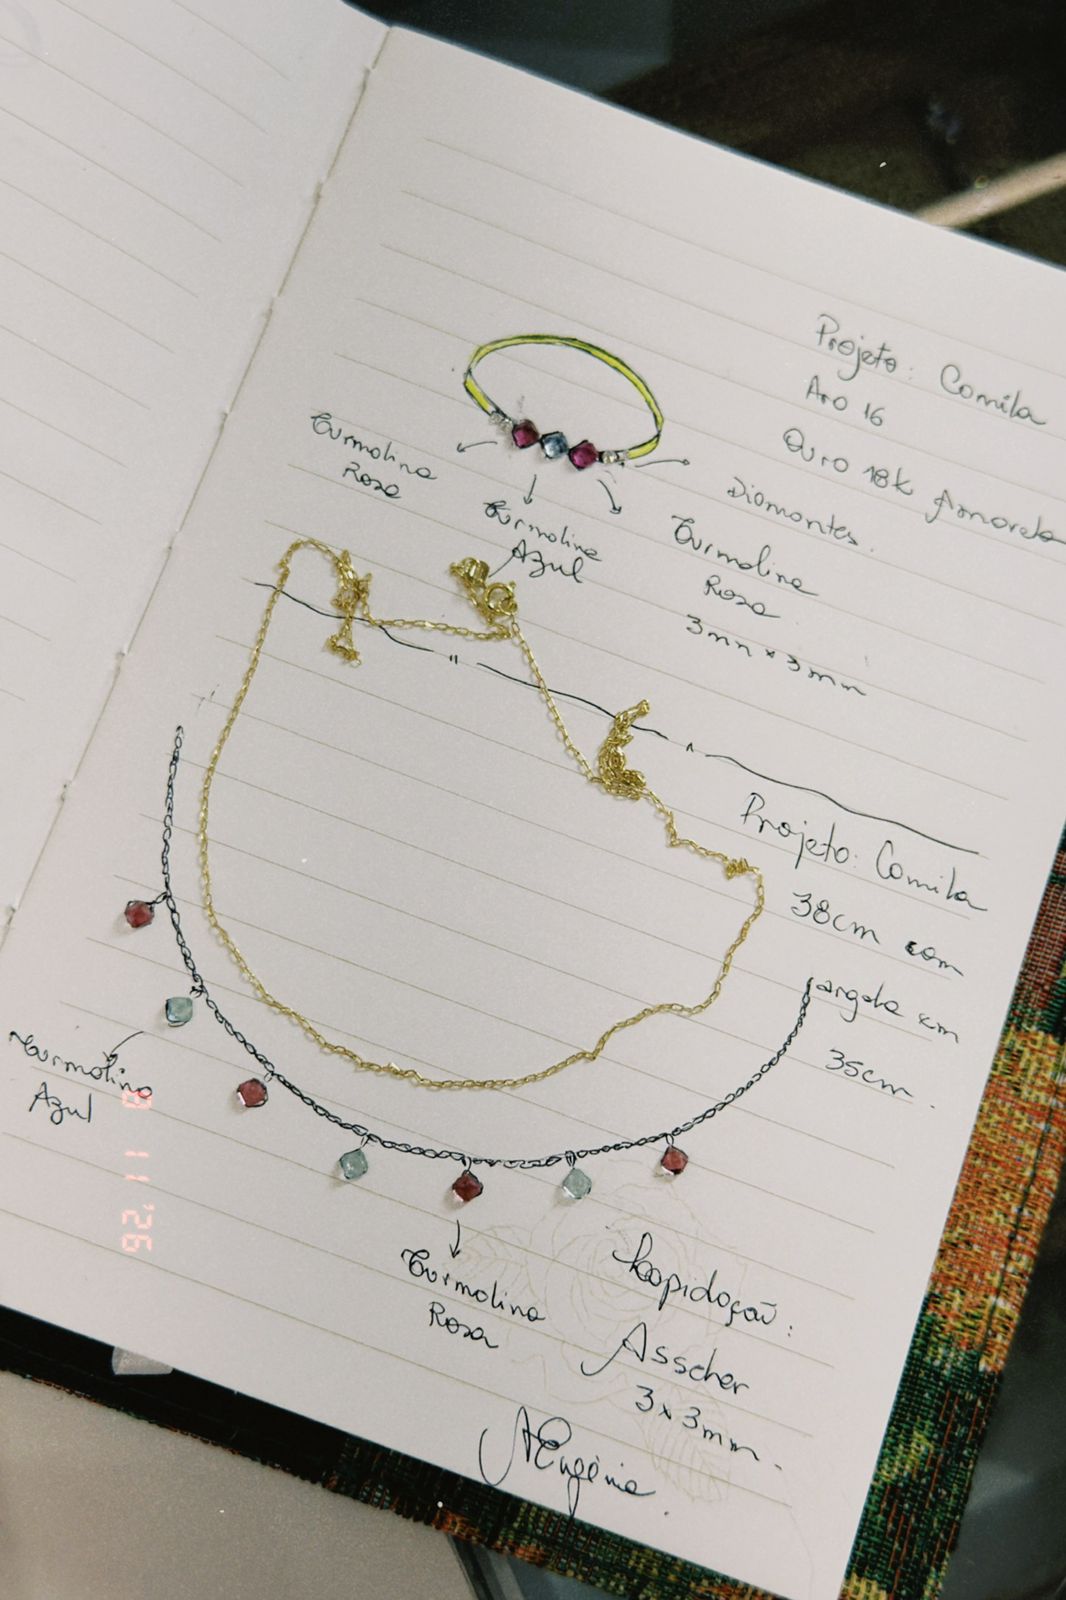 Projeto: Camila
Aro 16
Ouro 18k Amarelo
Diamantes.
Turmalina
Rosa
Turmalina
Azul
Turmalina
Rosa
3mm x 3mm
Projeto: Camila
38cm com
argola em
35cm.
Turmalina
Azul
Turmalina
Rosa
Lapidação:
Asscher
3x3mm.
AEugênia.
8 11 '26